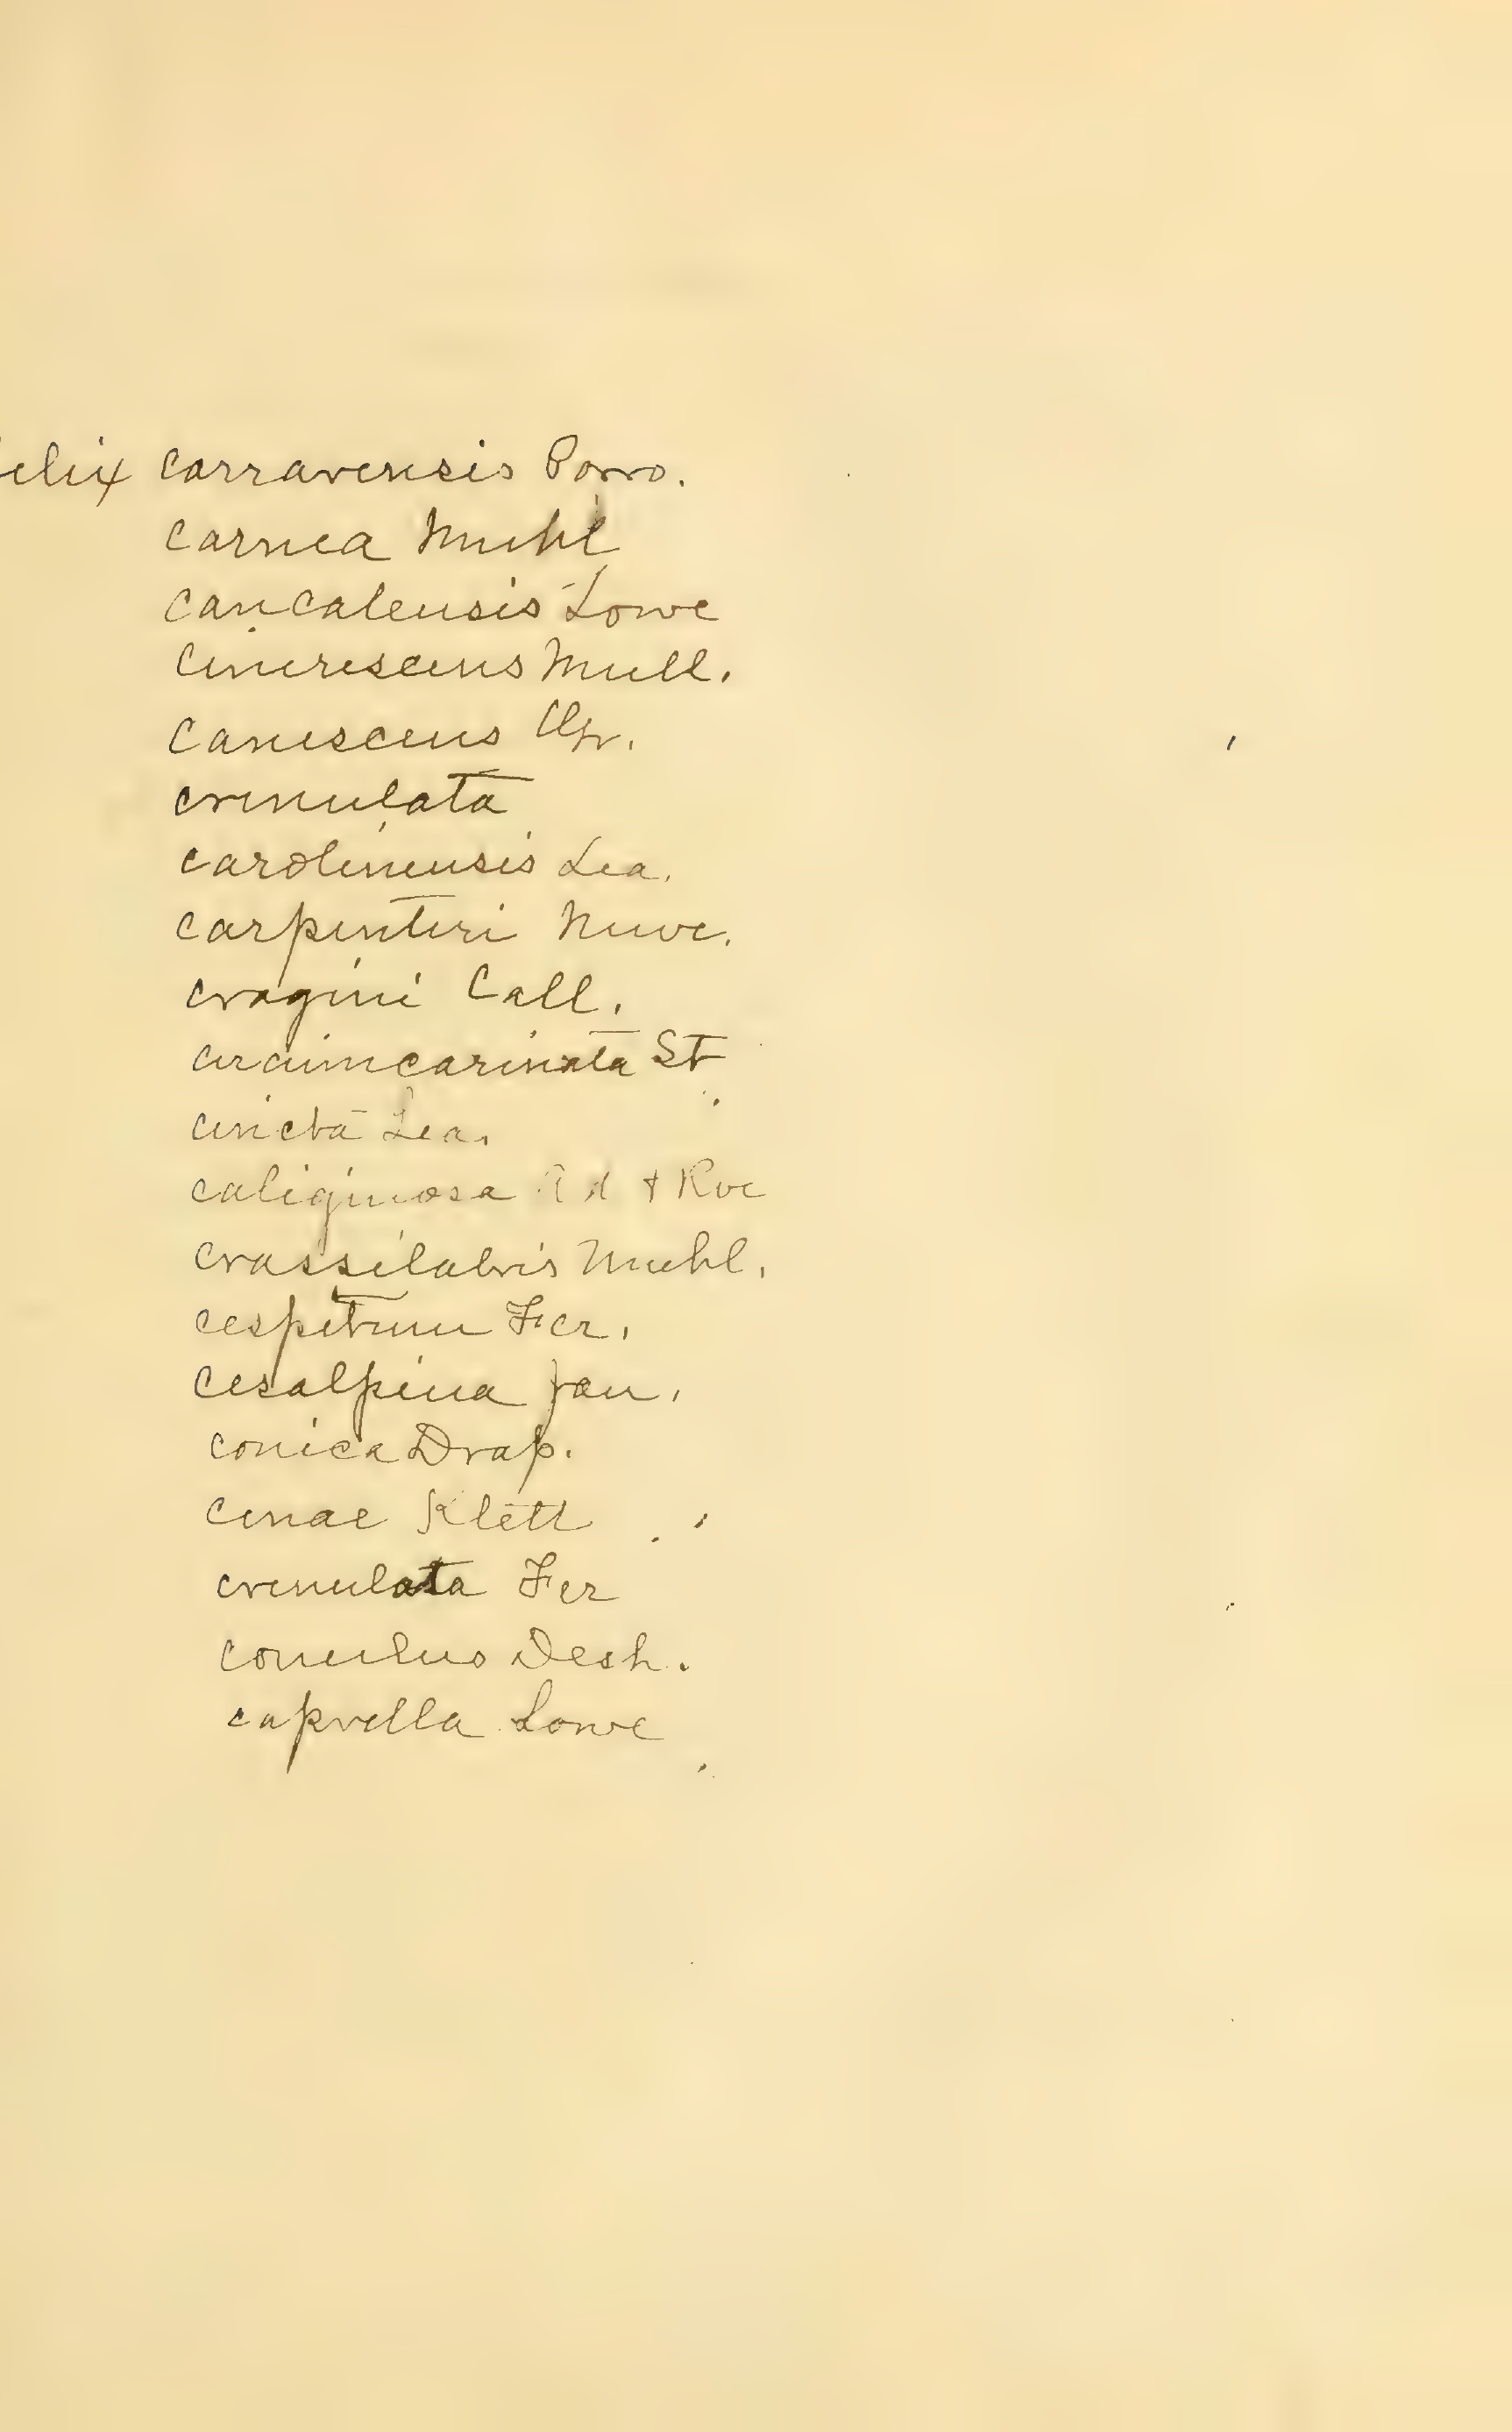 elix carravensis Porro.
carnea Muhl
cancalensis Lowe
cinerescens Mull.
canescens
crenulata
carolinensis Lea.
carpenteri Newc.
cragini Call.
circumcarinata St
cincta Lea.
caliginosa Ad & Rve
crassilabris Muhl.
cespitum Fer.
cesalpina Jan.
conica Drap.
cinae Klett
crenulata Fer
conulus Desh.
caprella Lowe